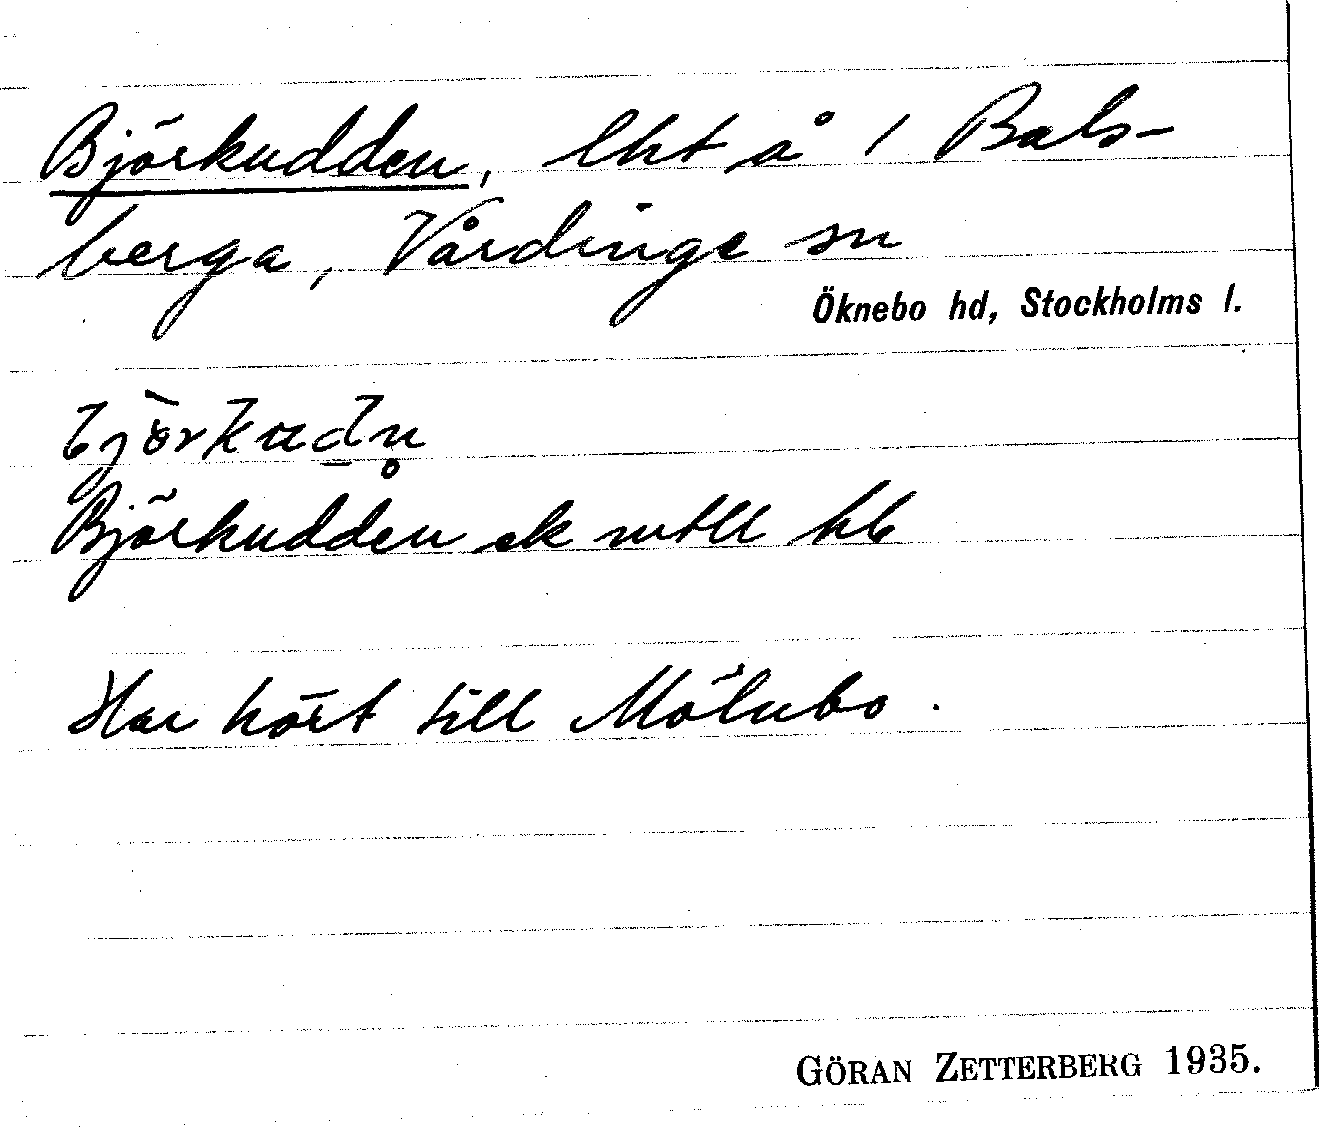 Björkudden, lht å 1 Bals-
berga, Vårdinge sn
Öknebo hd, Stockholms l.
Björkudden ek
Har hört till Mölnbo.
GÖRAN ZETTERBERG 1935.